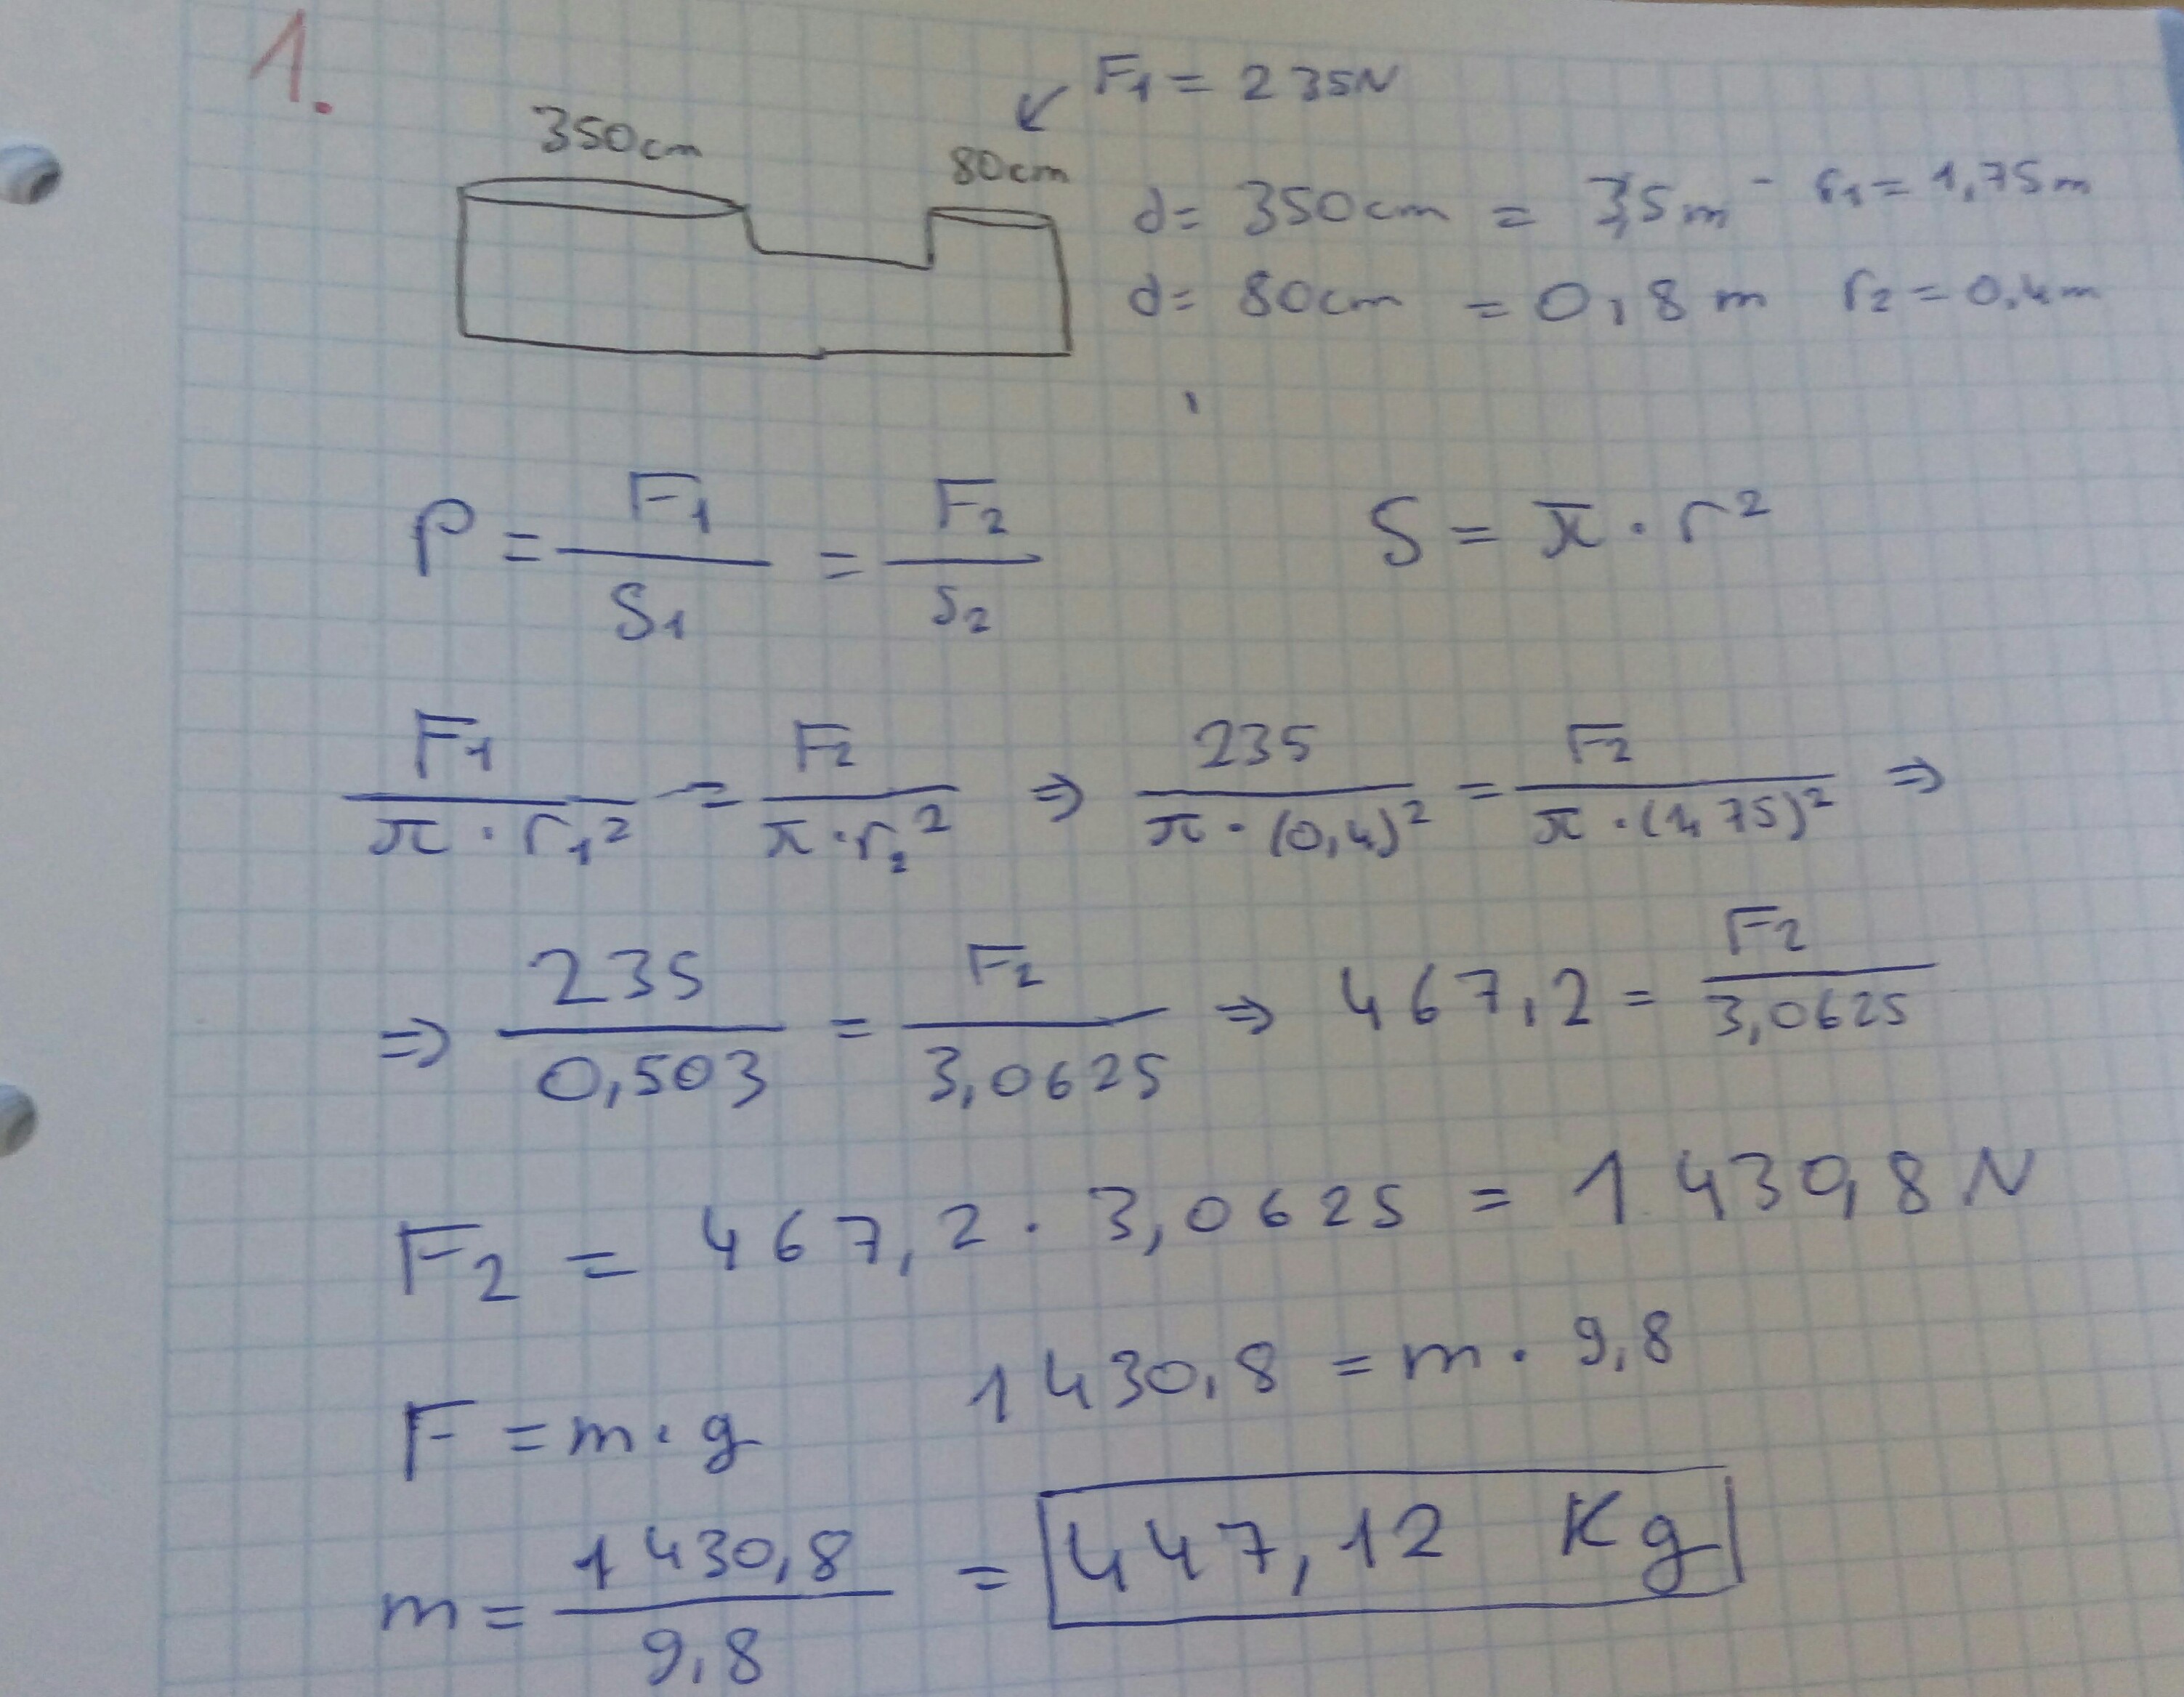 1.
F₁ = 235N
350cm
80cm
d = 350cm = 3,5m - r₁ = 1,75m
d = 80cm = 0,8m r₂ = 0,4m
P = F₁/S₁ = F₂/S₂ S = π · r²
F₁/(π · r₁²) = F₂/(π · r₂²) ⇒ 235/(π · (0,4)²) = F₂/(π · (1,75)²) ⇒
⇒ 235/0,503 = F₂/3,0625 ⇒ 467,2 = F₂/3,0625
F₂ = 467,2 · 3,0625 = 1430,8 N
F = m · g 1430,8 = m · 9,8
m = 1430,8/9,8 = 447,12 Kg